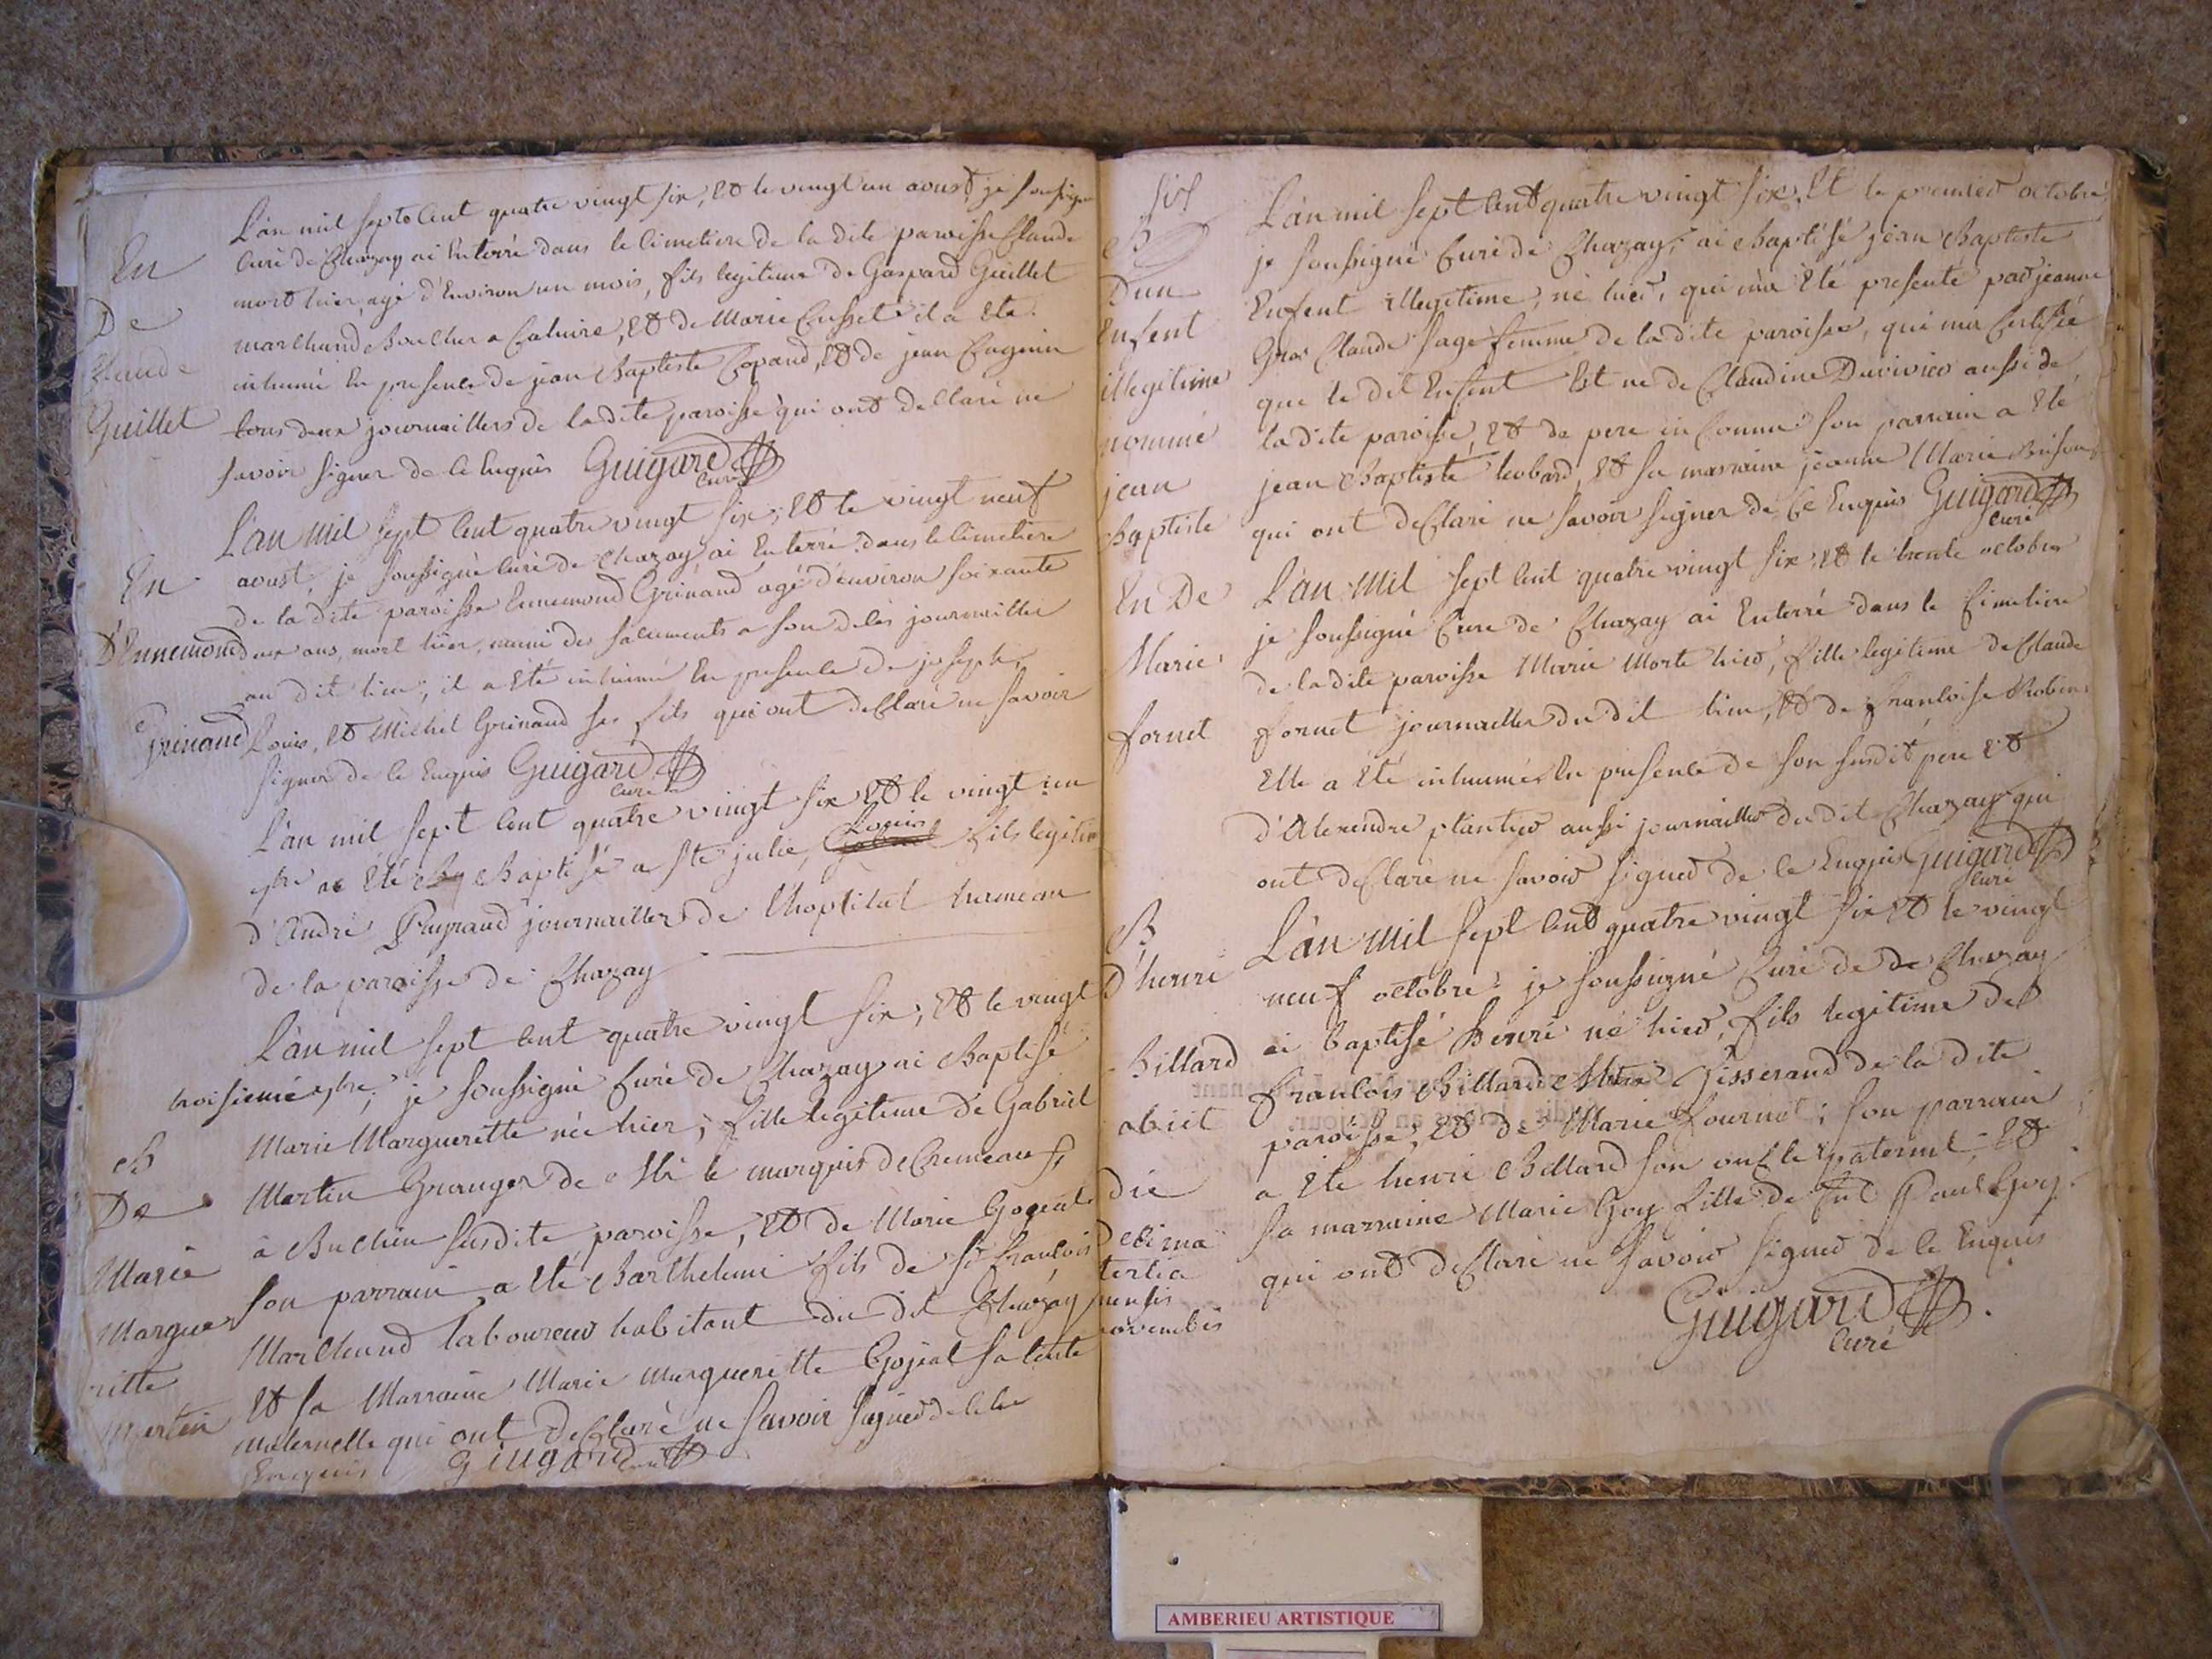 En
De
Claude
Guillet
L'an mil sept Cent quatre vingt six, Et le vingt un aoust je soussigné
Curé de Chazay ai Enterré dans le Cimetiere de la dite paroisse Claude
mort hier, agé d'Environ un mois, fils legitime de Gaspard Guillet
marchand Boucher a Caluire, Et de Marie il a Eté
inhumé En presence de jean Baptiste Et de jean
tous deux journailliers de la dite paroisse qui ont declaré ne
savoir signer de ce Enquis Guigard
Curé
En
D'Ennemond
Grinand
L'an Mil sept Cent quatre vingt six, Et le vingt neuf
aoust, je soussigné Curé de Chazay, ai Enterré dans le Cimetiere
de la dite paroisse Ennemond Grinand agé d'environ soixante
deux ans, mort hier, muni des sacrements a son deces journaillier
au dit lieu; il a Eté inhumé En presence de joseph,
Louis, Et Michel Grinand ses fils qui ont declaré ne savoir
signer de ce Enquis Guigard
Curé
L'an mil sept Cent quatre vingt six Et le vingt un
a Eté Baptisé a Ste julie, Louis fils legitim
d'André Peyraud journaillier de Lhopital hameau
de la paroisse de Chazay
B
De
Marie
Margue
ritte
Martin
L'an mil sept Cent quatre vingt six; Et le vingt
troisieme je soussigné Curé de Chazay ai Baptisé
Marie Marguerette née hier; fille legitime de Gabriel
Martin Granger de Mr le marquis de Cremeaux
a Buchin susdite paroisse, Et de Marie
son parrain a Eté Barthelemi fils de Sr francois
Marchand laboureur habitant du dit Chazay
Et sa Marraine Marie Marguerite Gojeat sa tente
maternelle qui ont declaré ne savoir signer de ce
Enquis Guigard Curé
B
D'un
Enfent
illegitime
nommé
jean
Baptiste
L'an mil sept Cent quatre vingt six, Et le premier octobre
je soussigné Curé de Chazay, ai Baptisé jean Baptiste
Enfent illegitime, né hier, qui m'a Eté presenté par jeanne
Gros Claude sage femme de la dite paroisse, qui ma Certifié
que le dit Enfent Est ne de Claudine Duvivier aussi de
la dite paroisse, Et de pere inconnu son parrain a Eté
jean Baptiste Et sa marraine jeanne Marie
qui ont declaré ne savoir signer de Ce Enquis Guigard
Curé
En De
Marie
fornet
L'an Mil sept Cent quatre vingt six, Et le trente octobre
je soussigné Curé de Chazay ai Enterré dans le Cimetiere
de la dite paroisse Marie Morte hier, fille legitime de Claude
fornet journaillier du dit lieu, Et de francoise Robin
Elle a Eté inhumée En presence de son susdit pere Et
d'Alexendre plantier aussi journaillier du dit Chazay qui
ont declaré ne savoir signer de ce Enquis Guigard
Curé
B
D'henri
Billard
abiit
die
decima
tertia
mensis
novembris
L'an Mil sept Cent quatre vingt six Et le vingt
neuf octobre je soussigné Curé de de Chazay
ai baptisé henri né hier, fils legitime de
francois Billard Tisserand de la dite
paroisse, Et de Marie fournet; son parrain
a Eté henri Billard son oncle paternel, Et
sa marraine Marie Goy fille de feu Paul Goy
qui ont declaré ne savoir signer de ce Enquis
Guigard
Curé
AMBERIEU ARTISTIQUE